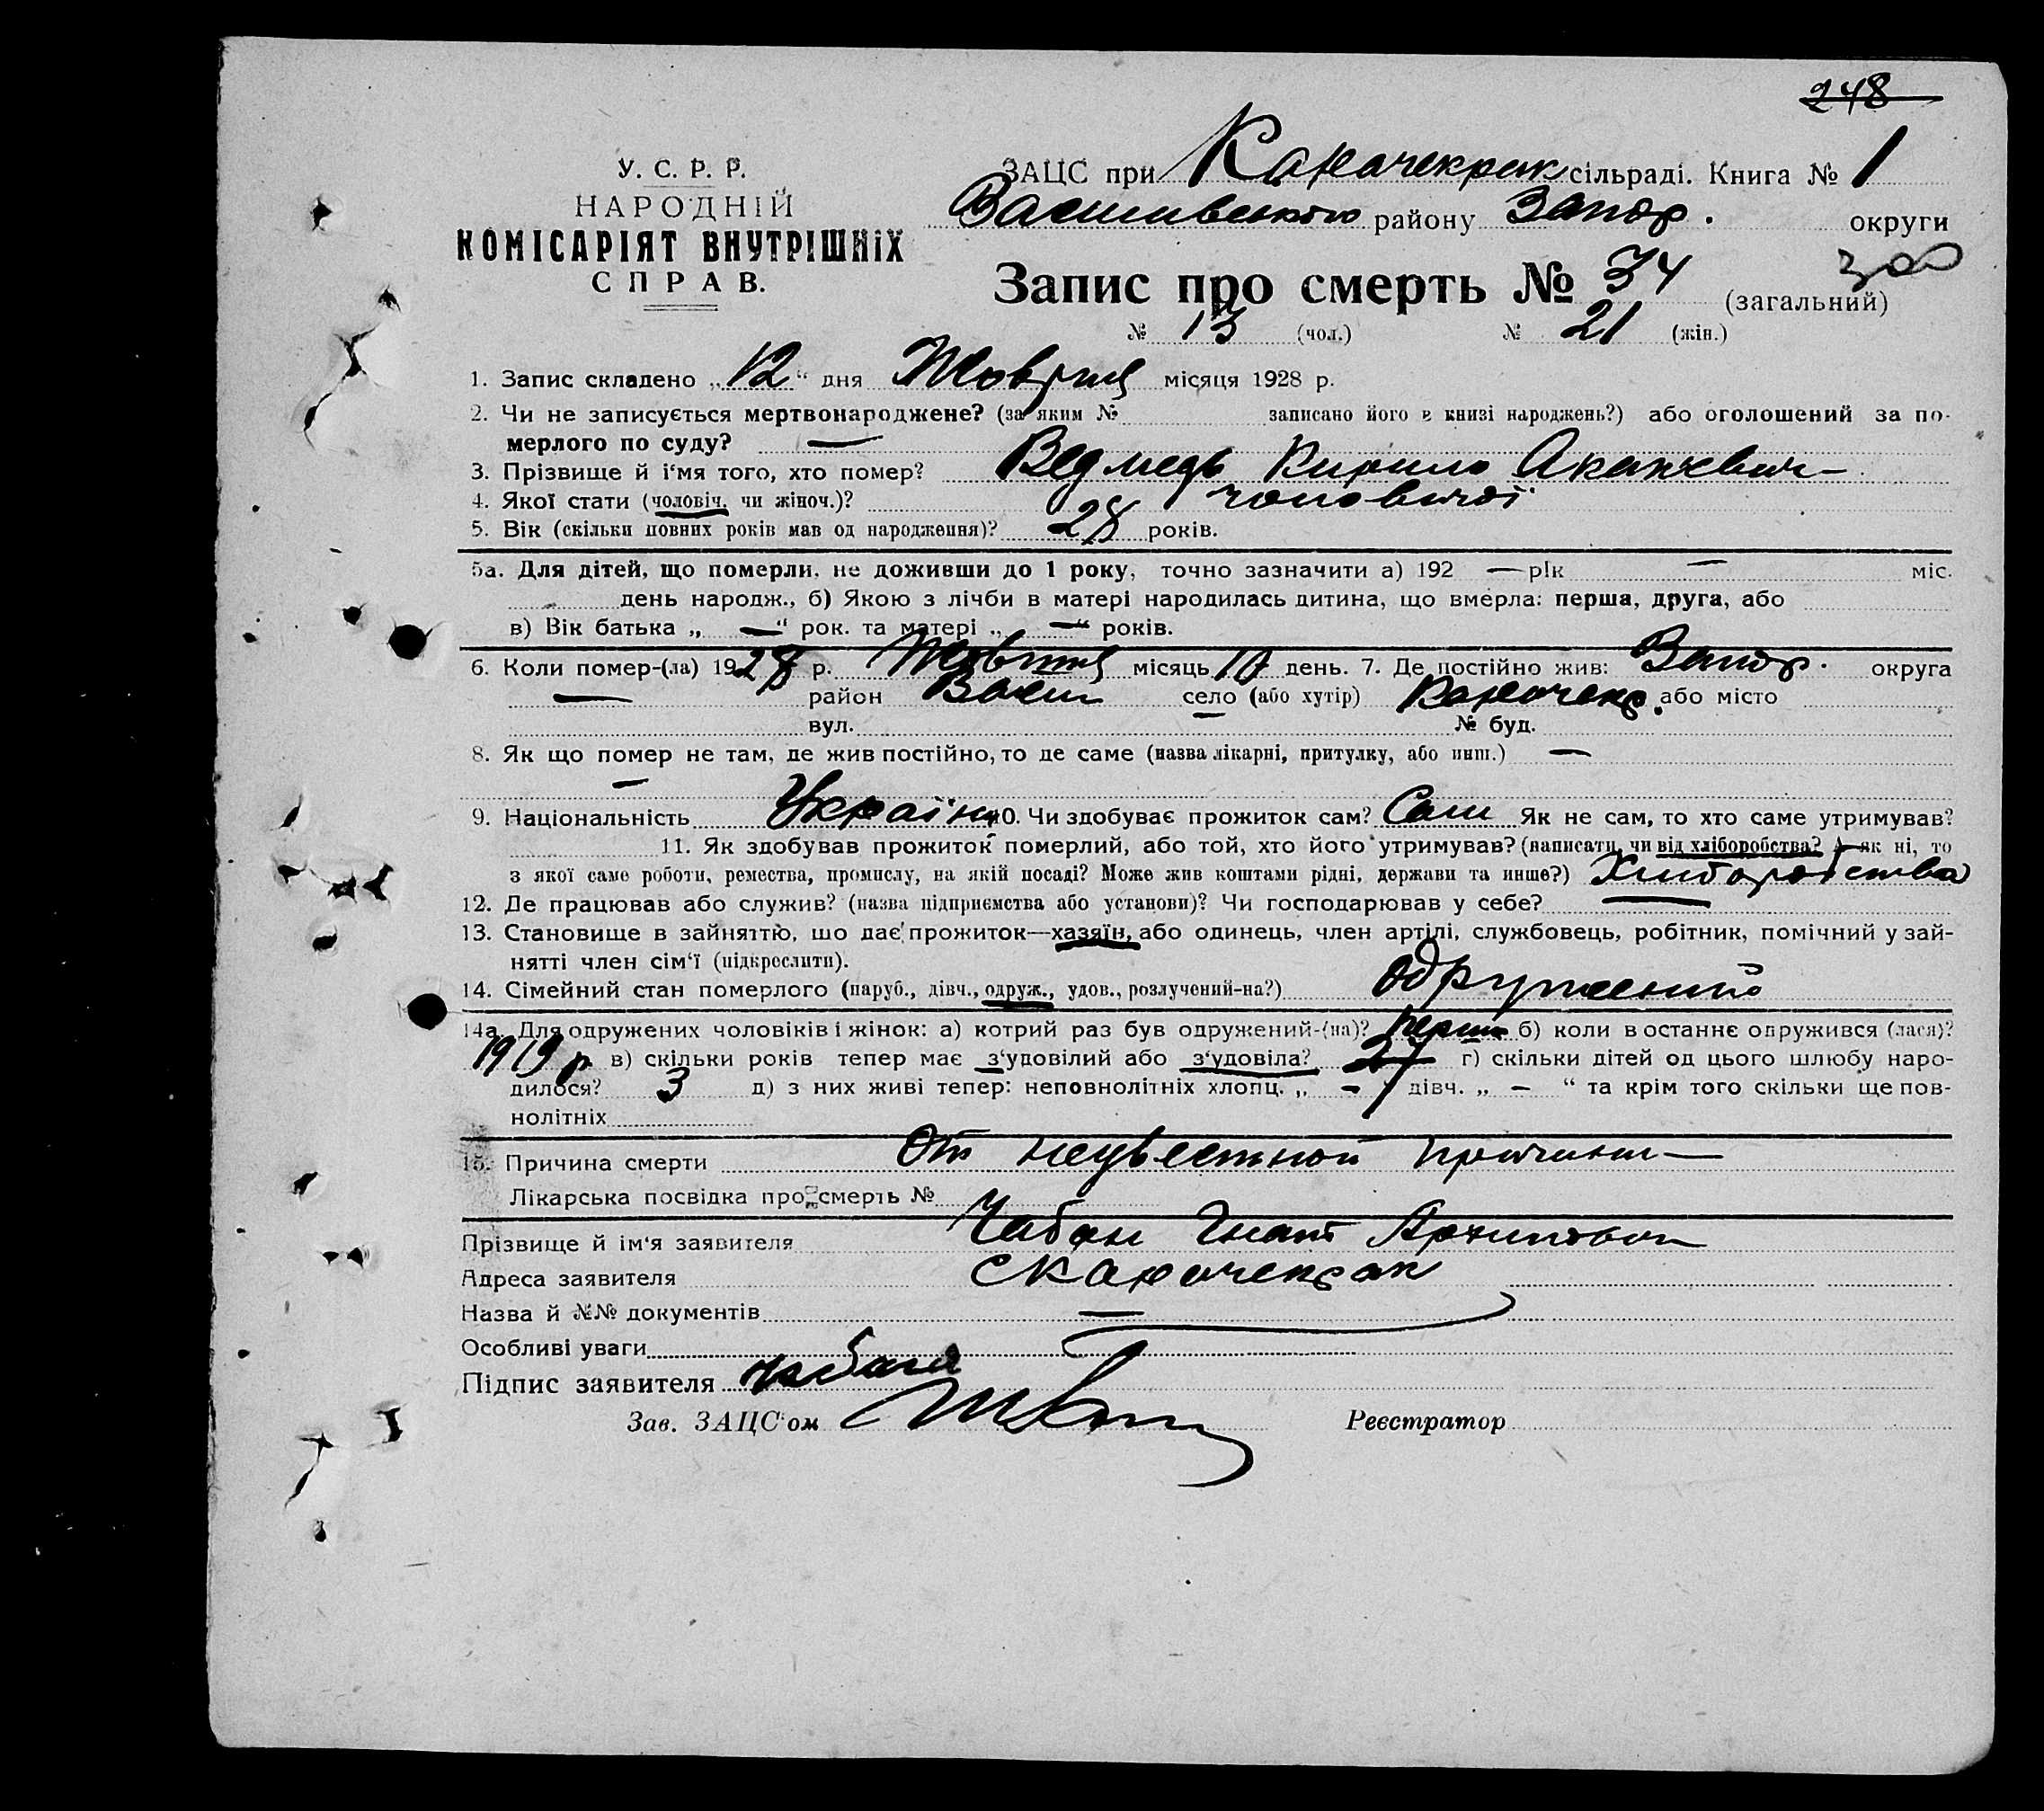 248
У. С. Р. Р.
НАРОДНІЙ
КОМІСАРІЯТ ВНУТРІШНІХ
СПРАВ.
ЗАЦС при Карачекрак сільраді. Книга № 1
Василівського району Запор. округи
300
Запис про смерть № 34 (загальний)
№ 13 (чол.) № 21 (жін.)
1. Запис складено „12“ дня Жовтня місяця 1928 р.
2. Чи не записується мертвонароджене? (за яким № записано його в книзі народжень?) або оголошений за по-
мерлого по суду? —
3. Прізвище й і‘мя того, хто помер? Ведмедь Кирило
4. Якої стати (чоловіч. чи жіноч.)? чоловичої
5. Вік (скільки повних років мав од народження)? 28 років.
5а. Для дітей, що померли, не доживши до 1 року, точно зазначити а) 192 — рік — міс.
день народж., б) Якою з лічби в матері народилась дитина, що вмерла: перша, друга, або
в) Вік батька „ — “ рок. та матері „ — “ років.
6. Коли помер-(ла) 1928 р. Жовтня місяць 10 день. 7. Де постійно жив: Запор. округа
— район Васил село (або хутір) Карачекр. або місто
вул. — № буд.
8. Як що помер не там, де жив постійно, то де саме (назва лікарні, притулку, або инш.) —
—
9. Національність Україн 10. Чи здобуває прожиток сам? Сам Як не сам, то хто саме утримував?
11. Як здобував прожиток померлий, або той, хто його утримував? (написати, чи від хліборобства? А як ні, то
з якої саме роботи, ремества, промислу, на якій посаді? Може жив коштами рідні, держави та инше?) Хлиборобства
12. Де працював або служив? (назва підприємства або установи)? Чи господарював у себе? —
13. Становище в зайняттю, шо дає прожиток—хазяїн, або одинець, член артілі, службовець, робітник, помічний у зай-
нятті член сім‘ї (підкреслити).
14. Сімейний стан померлого (паруб., дівч., одруж., удов., розлучений-на?) одружений
14а. Для одружених чоловіків і жінок: а) котрий раз був одружений-(на)? перши б) коли в останнє одружився (лася)?
1919 р в) скільки років тепер має з‘удовілий або з‘удовіла? 27 г) скільки дітей од цього шлюбу наро-
дилося? 3 д) з них живі тепер: неповнолітніх хлопц. „ - “ дівч. „ — “ та крім того скільки ще пов-
нолітніх
15. Причина смерти От неувестной причини —
Лікарська посвідка про смерть №
Прізвище й ім‘я заявителя Чабан Гнат Архипович
Адреса заявителя с Карачекрак
Назва й №№ документів —
Особливі уваги
Підпис заявителя Чабан
Зав. ЗАЦС‘ом Реєстратор